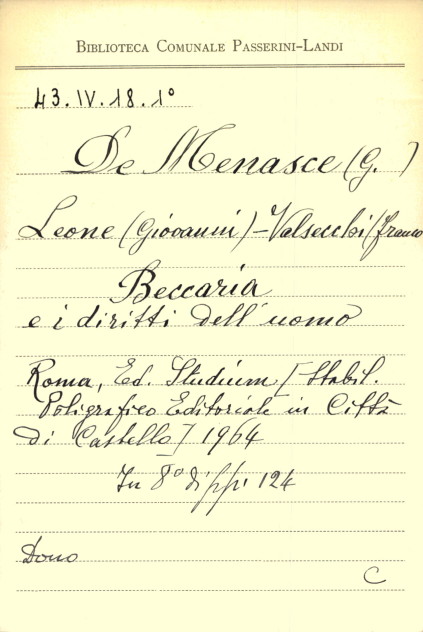 BIBLIOTECA COMUNALE PASSERINI-LANDI
43.IV.18.1°
De Menasce (G. )
Leone (Giovanni) - Valsecchi (Franco
Beccaria
e i diritti dell'uomo
Roma, Ed. Studium [Stabil.
Poligrafico Editoriale in Città
di Castello] 1964
In 8° di pp. 124
Dono
C